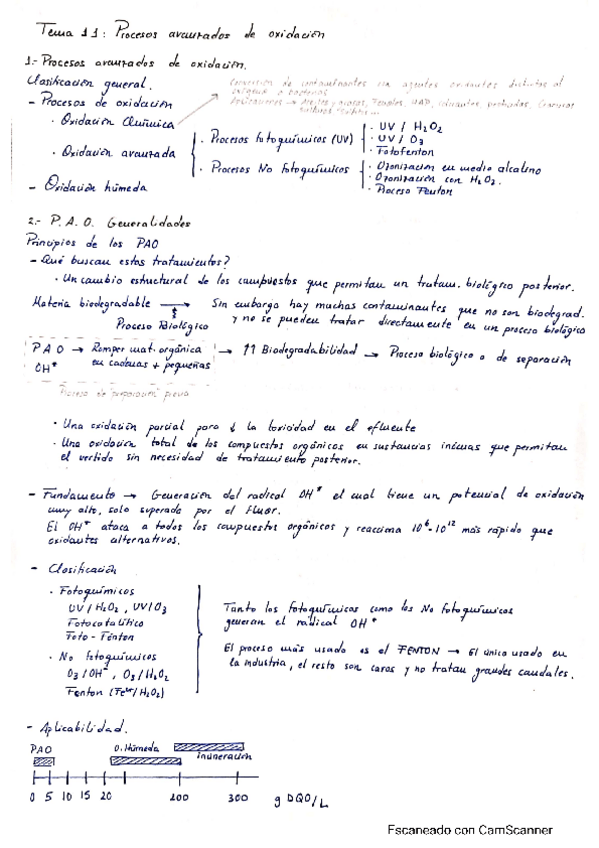 Tema 11: Procesos avanzados de oxidación
1.- Procesos avanzados de oxidación.
Clasificación general.
Conversión de contaminantes con agentes oxidantes distintos al
oxígeno o bacterias
- Procesos de oxidación
· Oxidación Química
· Oxidación avanzada
· Procesos fotoquímicos (UV)
· UV / H2O2
· UV / O3
· Fotofenton
· Procesos No fotoquímicos
· Ozonización en medio alcalino
· Ozonización con H2O2.
· Proceso Fenton
- Oxidación húmeda
2.- P.A.O. Generalidades
Principios de los PAO
- Qué buscan estos tratamientos?
· Un cambio estructural de los compuestos que permitan un tratam. biológico posterior.
Materia biodegradable → Sin embargo hay muchos contaminantes que no son biodegrad.
Proceso Biológico y no se pueden tratar directamente en un proceso biológico
PAO → Romper mat. orgánica → ↑↑ Biodegradabilidad → Proceso biológico o de separación
OH* en cadenas + pequeñas
Proceso de "preparación" previa
· Una oxidación parcial para ↓ la toxicidad en el efluente
· Una oxidación total de los compuestos orgánicos en sustancias inicuas que permitan
el vertido sin necesidad de tratamiento posterior.
- Fundamento → Generación del radical OH* el cual tiene un potencial de oxidación
muy alto, solo superado por el Fluor.
El OH* ataca a todos los compuestos orgánicos y reacciona 10^6 - 10^12 más rápido que
oxidantes alternativos.
- Clasificación
· Fotoquímicos
UV / H2O2 , UV/O3
Fotocatalítico
Foto - Fenton
· No fotoquímicos
O3 / OH- , O3 / H2O2
Fenton (Fe2+/H2O2)
Tanto los fotoquímicos como los No fotoquímicos
generan el radical OH*
El proceso más usado es el FENTON → El único usado en
la industria, el resto son caros y no tratan grandes caudales.
- Aplicabilidad.
PAO O. Húmeda Incineración
0 5 10 15 20 200 300 g DQO/L
Escaneado con CamScanner